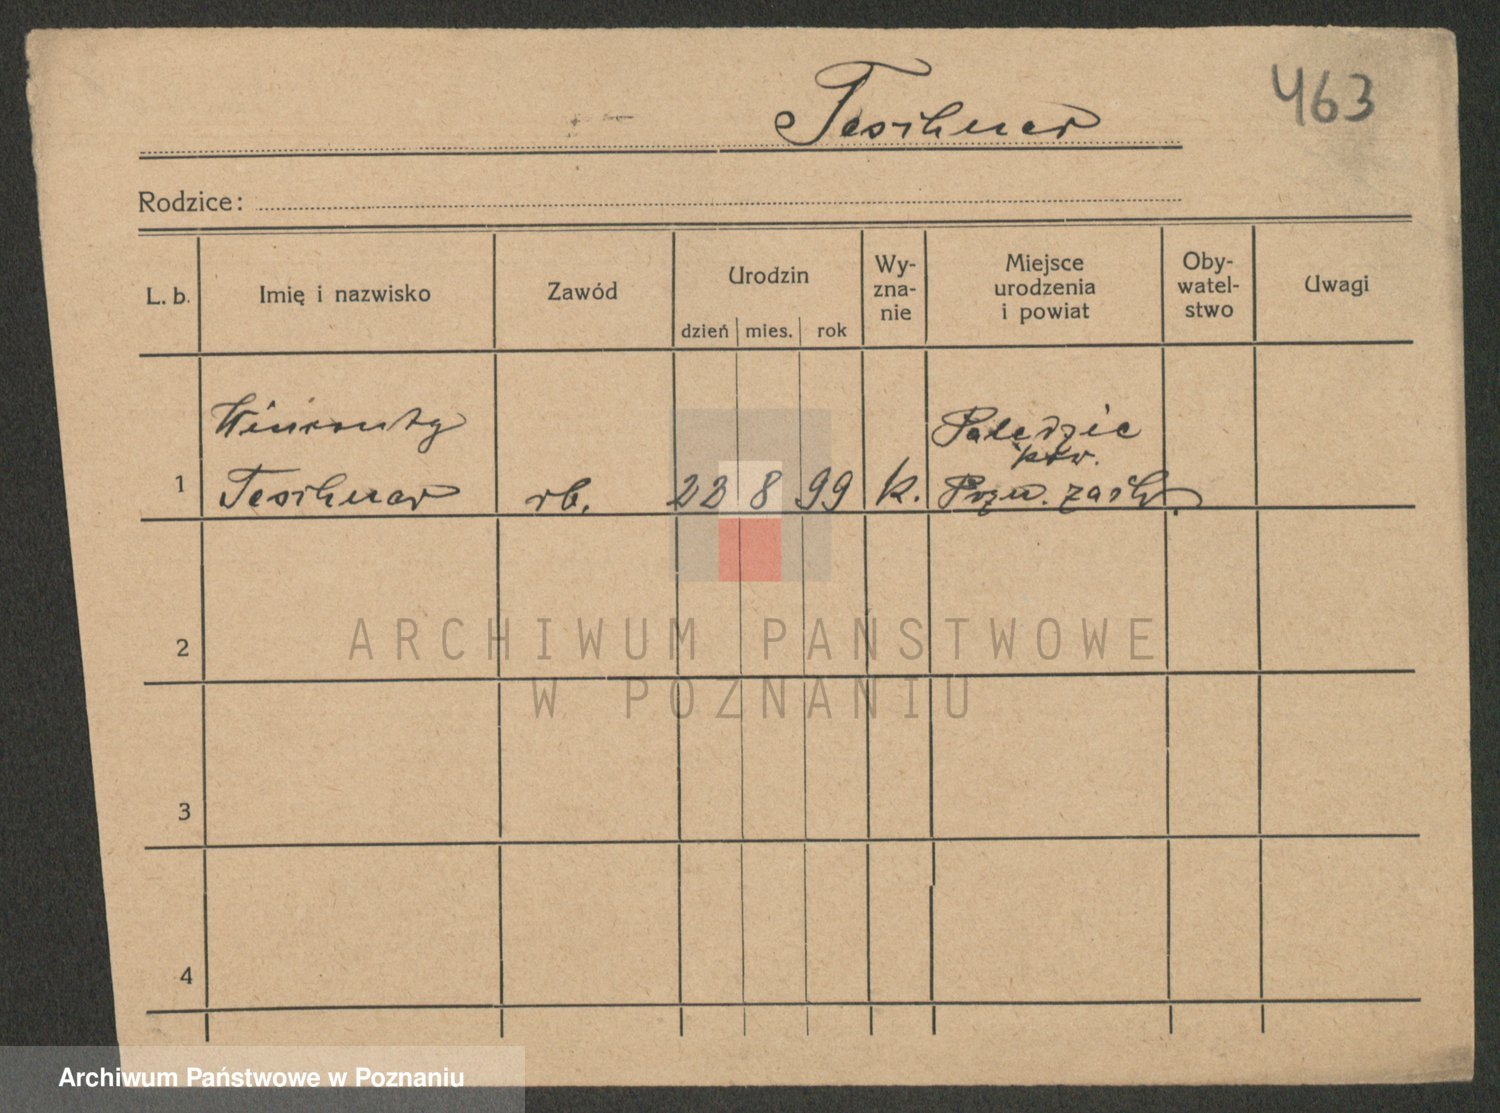 Teschner
463
Rodzice:
L. b.
Imię i nazwisko
Zawód
Urodzin
dzień mies. rok
Wy-
zna-
nie
Miejsce
urodzenia
i powiat
Oby-
watel-
stwo
Uwagi
1
Wincenty
Teschner
rb.
22 8 99
k.
Palędzie
ptw.
Pozn. zach.
2
3
4
ARCHIWUM PAŃSTWOWE
W POZNANIU
Archiwum Państwowe w Poznaniu